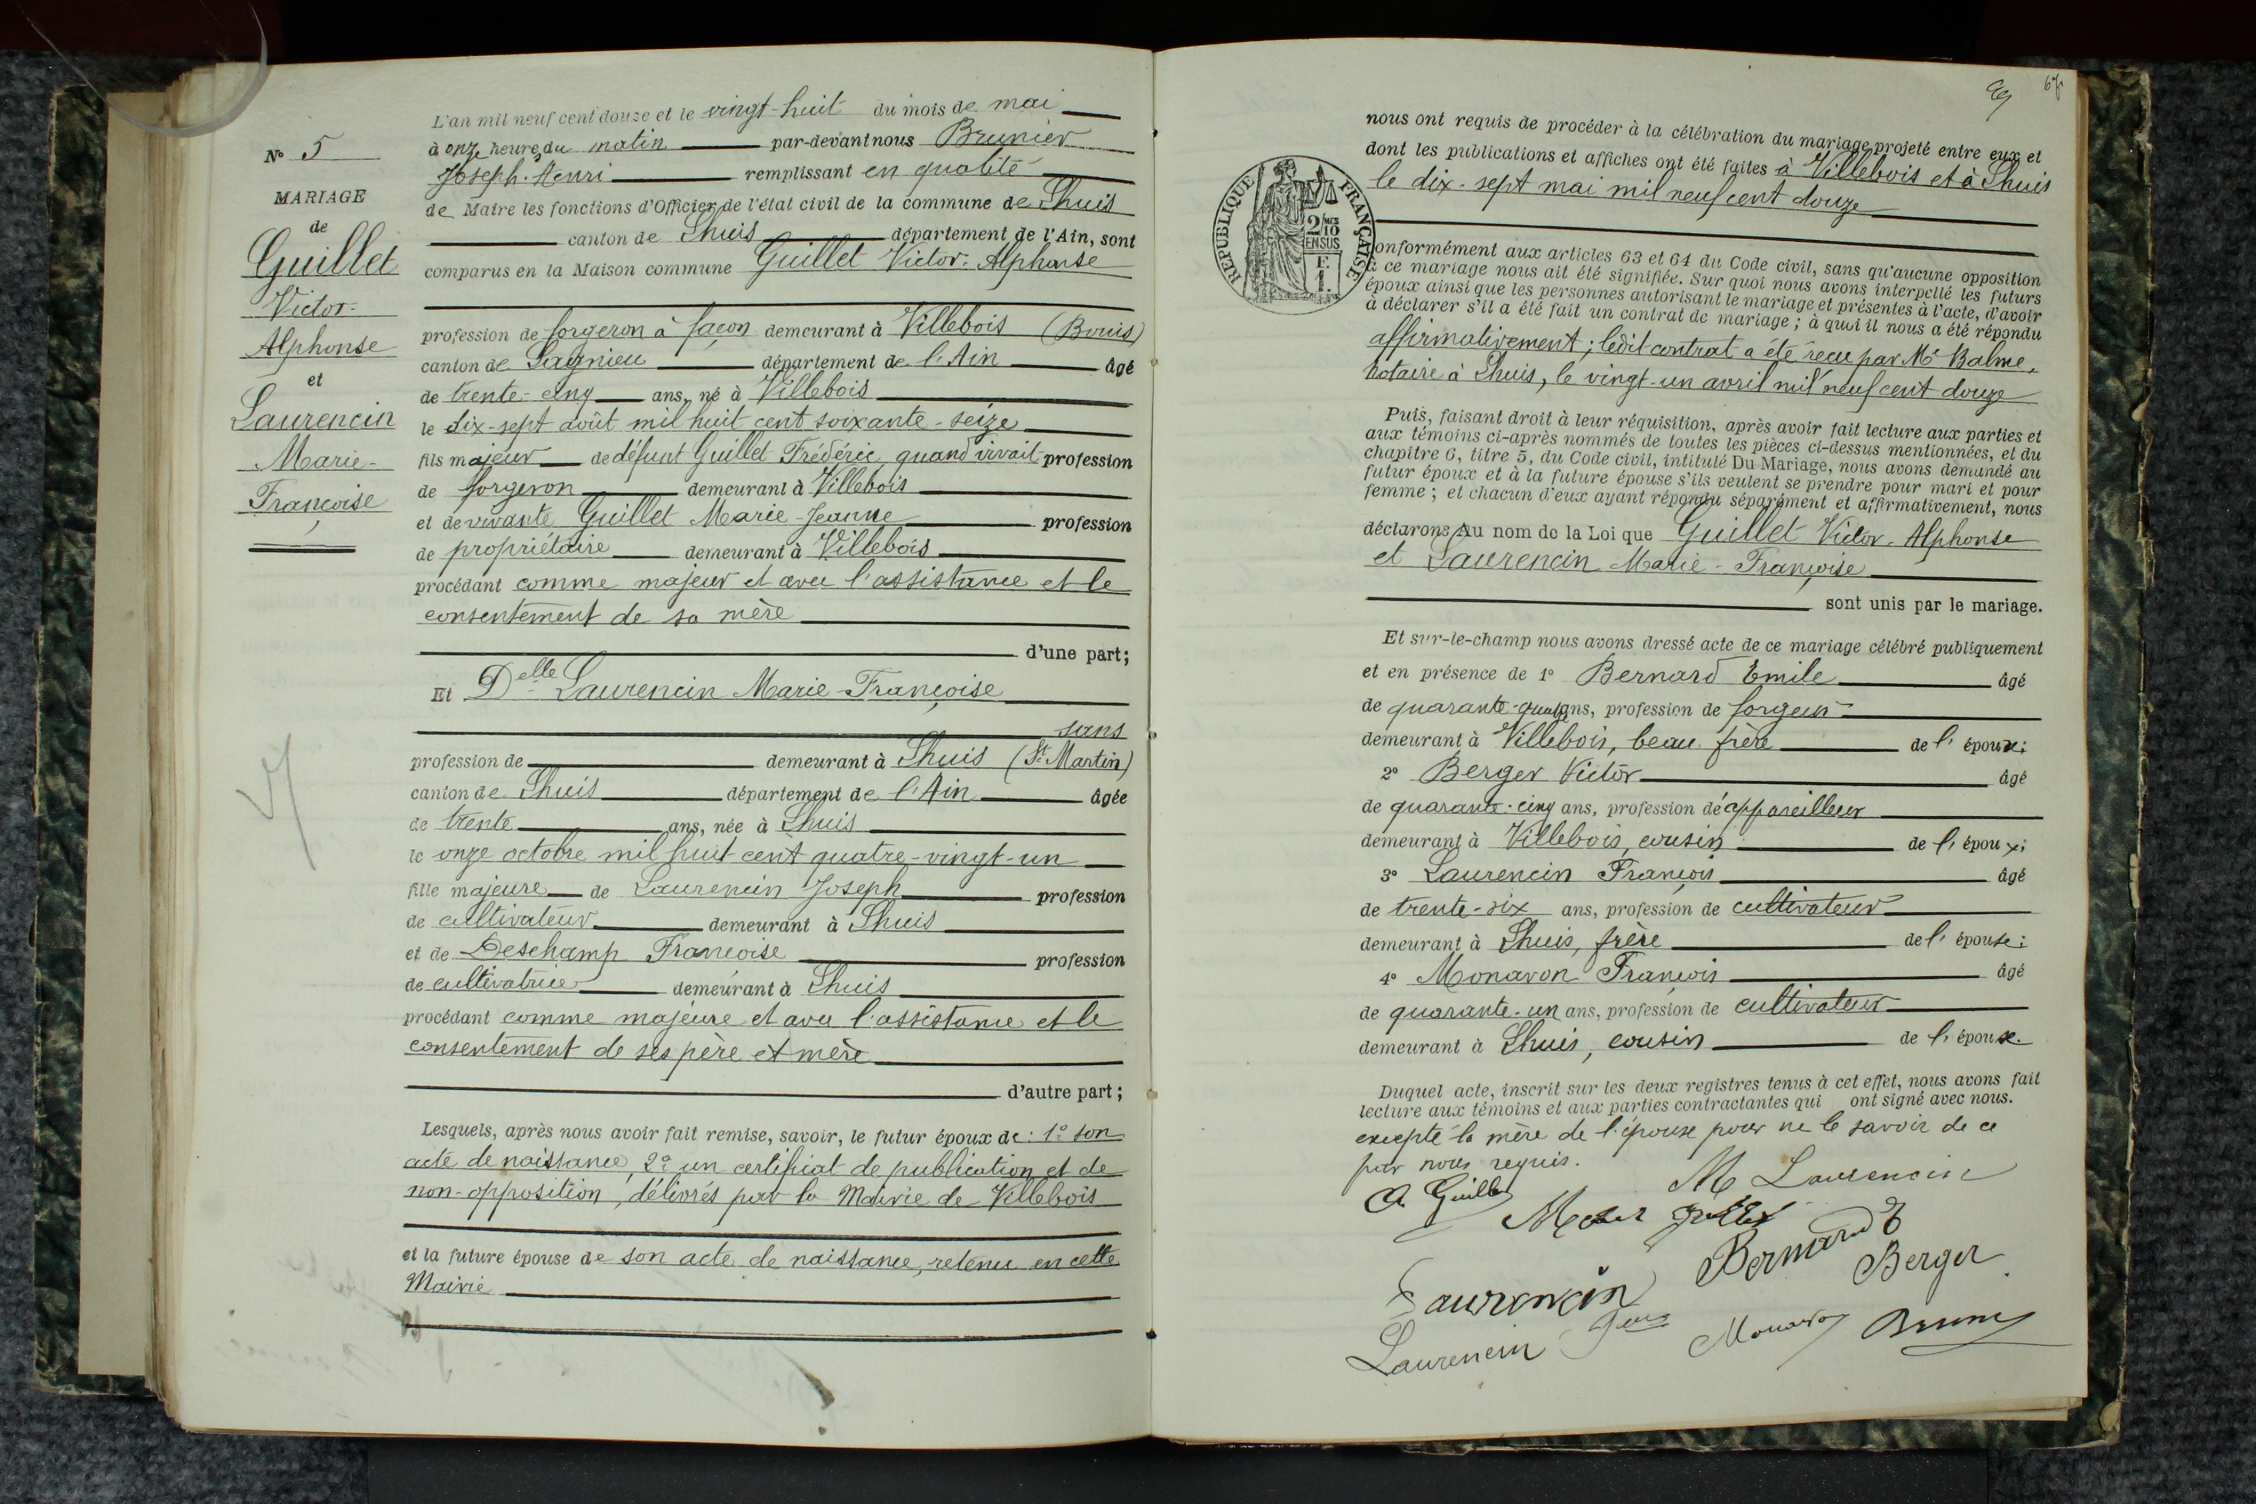 N° 5
MARIAGE
de
Guillet
Victor-
Alphonse
et
Laurencin
Marie-
Françoise
L'an mil neuf cent douze et le vingt-huit du mois de mai
à onze heures du matin par-devant nous Brunier
Joseph-Henri remplissant en qualité
de Maire les fonctions d'Officier de l'état civil de la commune de Lhuis
canton de Lhuis département de l'Ain, sont
comparus en la Maison commune Guillet Victor-Alphonse
profession de forgeron à façon demeurant à Villebois (Bouis)
canton de Lagnieu département de l'Ain âgé
de trente-cinq ans, né à Villebois
le dix-sept août mil huit cent soixante-seize
fils majeur de défunt Guillet Frédéric quand vivait profession
de forgeron demeurant à Villebois
et de vivante Guillet Marie-Jeanne profession
de propriétaire demeurant à Villebois
procédant comme majeur et avec l'assistance et le
consentement de sa mère
d'une part;
Et Delle Laurencin Marie-Françoise
sans
profession de demeurant à Lhuis (St Martin)
canton de Lhuis département de l'Ain âgée
de trente ans, née à Lhuis
le onze octobre mil huit cent quatre-vingt-un
fille majeure de Laurencin Joseph profession
de cultivateur demeurant à Lhuis
et de Deschamp Françoise profession
de cultivatrice demeurant à Lhuis
procédant comme majeure et avec l'assistance et le
consentement de ses père et mère
d'autre part;
Lesquels, après nous avoir fait remise, savoir, le futur époux de: 1° son
acte de naissance, 2° un certificat de publication et de
non-opposition, délivrés par la Mairie de Villebois
et la future épouse de son acte de naissance, retenu en cette
Mairie
67
nous ont requis de procéder à la célébration du mariage projeté entre eux et
dont les publications et affiches ont été faites à Villebois et à Lhuis
le dix-sept mai mil neuf cent douze
RÉPUBLIQUE FRANÇAISE
2/10
EN SUS
F.
1.
conformément aux articles 63 et 64 du Code civil, sans qu'aucune opposition
à ce mariage nous ait été signifiée. Sur quoi nous avons interpellé les futurs
époux ainsi que les personnes autorisant le mariage et présentes à l'acte, d'avoir
à déclarer s'il a été fait un contrat de mariage; à quoi il nous a été répondu
affirmativement; ledit contrat a été reçu par Me Balme,
notaire à Lhuis, le vingt-un avril mil neuf cent douze
Puis, faisant droit à leur réquisition, après avoir fait lecture aux parties et
aux témoins ci-après nommés de toutes les pièces ci-dessus mentionnées, et du
chapitre 6, titre 5, du Code civil, intitulé Du Mariage, nous avons demandé au
futur époux et à la future épouse s'ils veulent se prendre pour mari et pour
femme; et chacun d'eux ayant répondu séparément et affirmativement, nous
déclarons Au nom de la Loi que Guillet Victor-Alphonse
et Laurencin Marie-Françoise
sont unis par le mariage.
Et sur-le-champ nous avons dressé acte de ce mariage célébré publiquement
et en présence de 1° Bernard Emile âgé
de quarante-quatre ans, profession de forgeur
demeurant à Villebois, beau-frère de l'époux;
2° Berger Victor âgé
de quarante-cinq ans, profession d'appareilleur
demeurant à Villebois, cousin de l'époux;
3° Laurencin François âgé
de trente-six ans, profession de cultivateur
demeurant à Lhuis, frère de l'épouse;
4° Monavon François âgé
de quarante-un ans, profession de cultivateur
demeurant à Lhuis, cousin de l'épouse.
Duquel acte, inscrit sur les deux registres tenus à cet effet, nous avons fait
lecture aux témoins et aux parties contractantes qui ont signé avec nous.
excepté la mère de l'épouse pour ne le savoir de ce
par nous requis.
M Laurencin
A. Guillet
Bernard E
Berger
Laurencin
Laurencin
Monavon